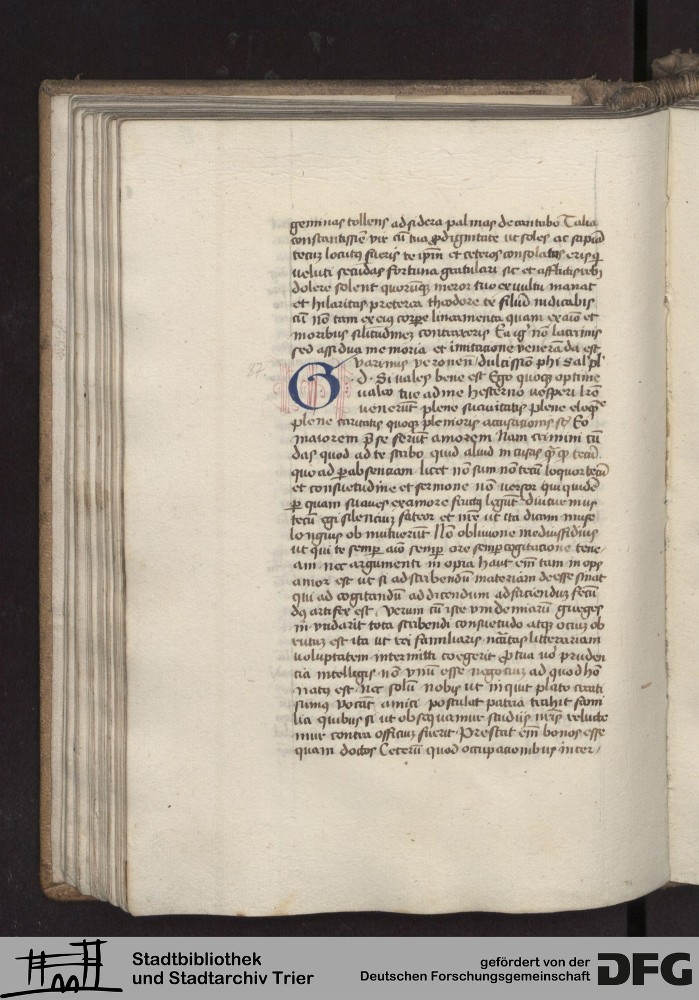 geminas tollens ad sidera palmas de cantubo Talia
constantissie vir cu tua dignitate ut soles ac sapia
tecu locut fueris te ipm et ceteros consolatus eris
veluti secudas fortuna gratulari sic et afflictis
dolere solent quorum meror tuo ex vultu manat
et hilaritas preterea theodore te filiu iudicabis
cu no tam ex eius corpe lineamenta quam ex aio et
moribus silitudinez contraxeris Ea ig no lacrimis
sed assidua memoria et imitacione veneranda est
87.
Gvarinus veronen dulcissio phi sal pl
d. Si vales bene est Ego quoq optime
valeo tue ad me hesterno vesperi lre
venerut plene suavitatis plene eloq
plene caritatis quoq plemoris accusationis st Eo
maiorem p se ferut amorem Nam crimini
das quod ad te scribo quid aliud in causa
quead p absenciam licet no sum no tecu loquor tecu
et consuetudine et sermone no versor qui quide
p quam suaves ex amore fructus legut diutue mus
tecu egi silencium fateor et nre ut ita dicam muse
longius obmutuerut No oblivione mediusfidius
ut qui te semp aio semp ore semp cogitacione tene
am nec argumenti in opia haut eni tam inops
amor est ut si ad scribendu materiam deesse sinat
qui ad cogitandu ad dicendum ad faciendum fecu
dus artifex est. Verum cu iste vindemiaru greges
in undarit tota scribendi consuetudo atq ocius ob
rutus est ita ut rei familiaris ncitas litterariam
voluptatem intermitti coegerit P tua vo pruden
cia intelligis no vnu esse negocium ad quod ho
natus est nec solu nobis ut inquit plato creati
sumus vocat amici postulat patria trahit fami
lia quibus si ut obsequamur studiis nris relucte
mur contra officiuz fuerit Prestat eni bonos esse
quam doctos Ceteru quod occupacionibus inter/
Stadtbibliothek
und Stadtarchiv Trier
gefördert von der
Deutschen Forschungsgemeinschaft
DFG